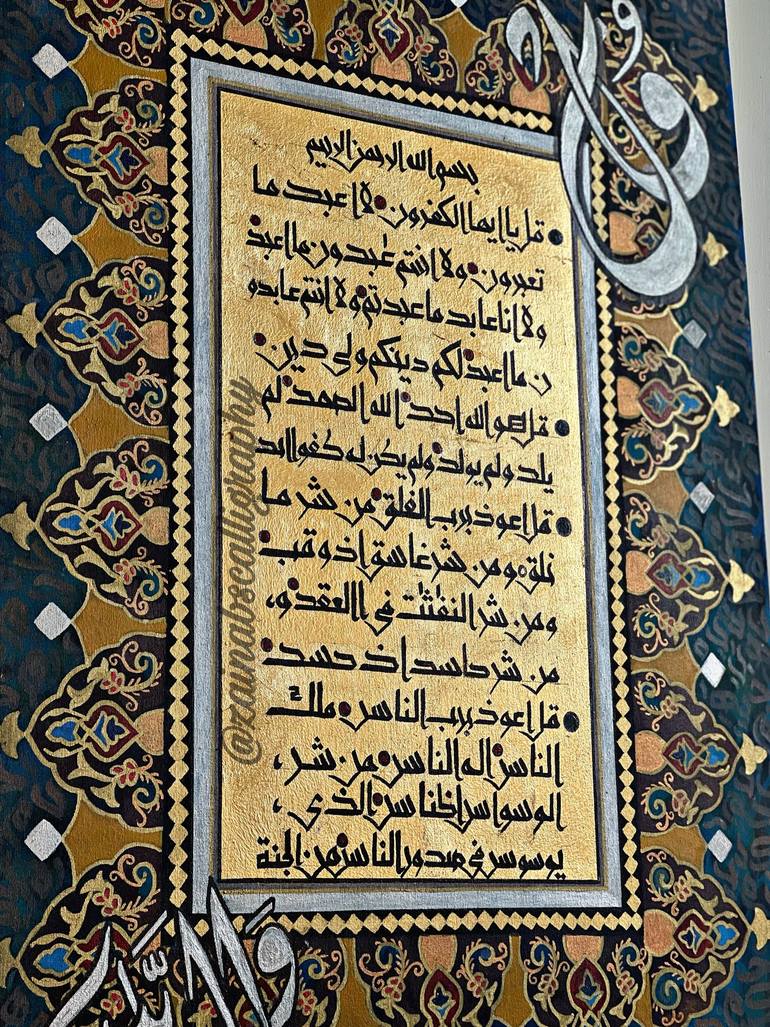 بسم الله الرحمن الرحيم
قل يا ايها الكفرون لا اعبد ما
تعبدون ولا انتم عٰبدون ما اعبد
ولا انا عابد ما عبدتم ولا انتم عابدو
ن ما اعبد لكم دينكم ولي دين
قل هو الله احد الله الصمد لم
يلد ولم يولد ولم يكن له كفوا احد
قل اعوذ برب الفلق من شر ما
خلق ومن شر غاسق اذ وقب
ومن شر النفٰثٰت في العقد و
من شر حاسد اذ حسد
قل اعوذ برب الناس ملك
الناس اله الناس من شر
الوسواس الخناس الذي
يوسوس في صدور الناس من الجنة
@zainabscalligraphy